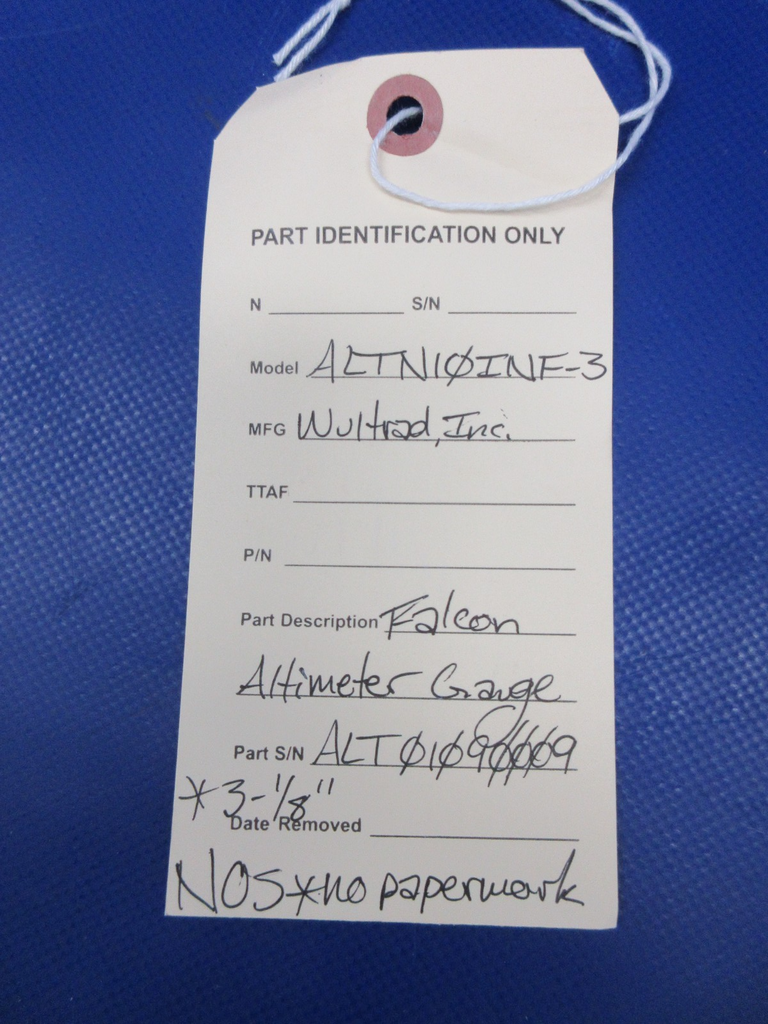 PART IDENTIFICATION ONLY
N S/N
Model ALTN10INF-3
MFG Wultrad, Inc.
TTAF
P/N
Part Description Falcon
Altimeter Gauge
Part S/N
*3-1/8"
Date Removed
NOS*no paperwork